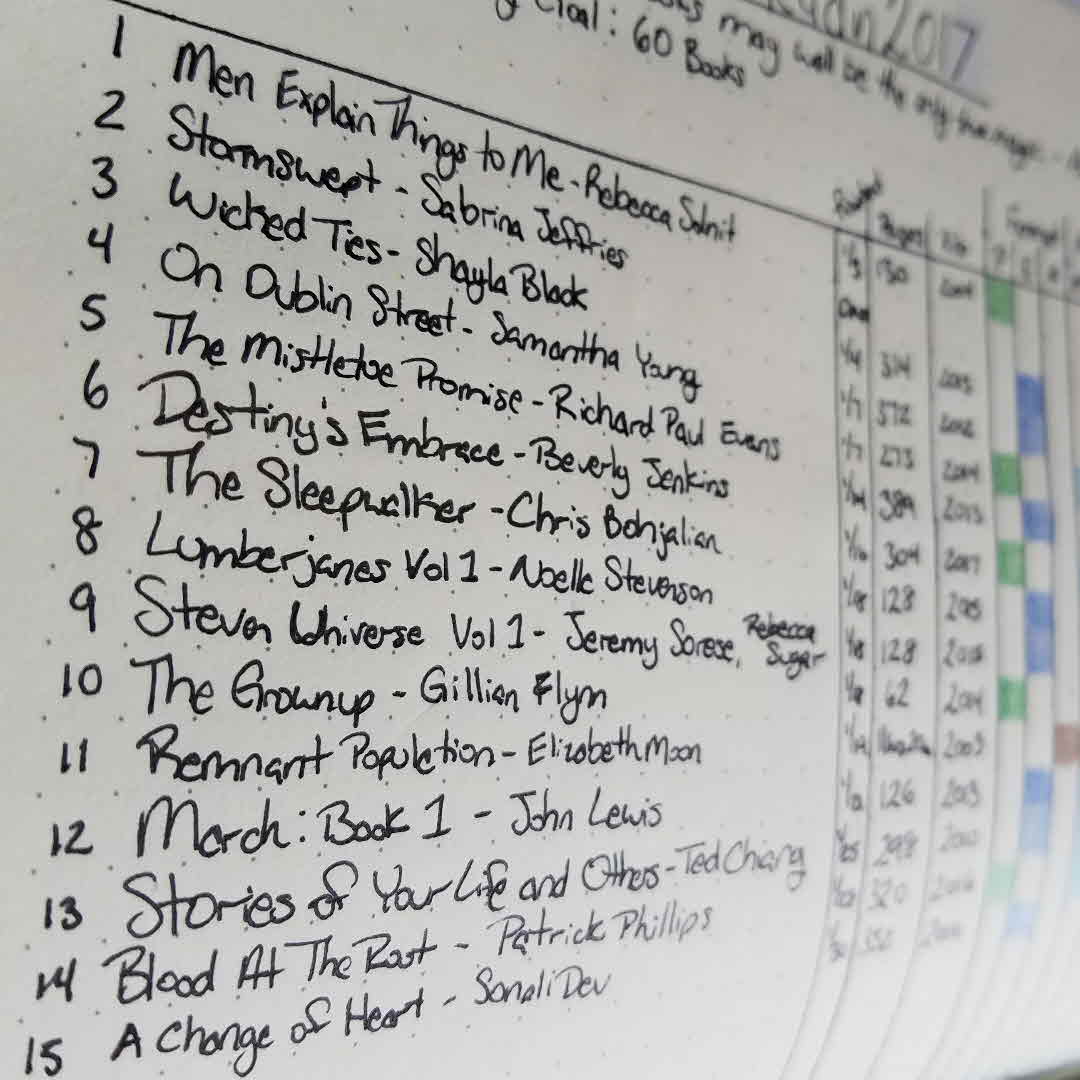 2017
Goal: 60 Books
may well be the only true magic.
1 Men Explain Things to Me - Rebecca Solnit
2 Stormswept - Sabrina Jeffries
3 Wicked Ties - Shayla Black
4 On Dublin Street - Samantha Young
5 The Mistletoe Promise - Richard Paul Evans
6 Destiny's Embrace - Beverly Jenkins
7 The Sleepwalker - Chris Bohjalian
8 Lumberjanes Vol 1 - Noelle Stevenson
9 Steven Universe Vol 1 - Jeremy Sorese, Rebecca Sugar
10 The Grownup - Gillian Flynn
11 Remnant Population - Elizabeth Moon
12 March: Book 1 - John Lewis
13 Stories of Your Life and Others - Ted Chiang
14 Blood At The Root - Patrick Phillips
15 A Change of Heart - Sonali Dev
Pages
Format
130
314
372
273
389 2013
304 2017
128
128
62 2014
2003
126 2013
298
320